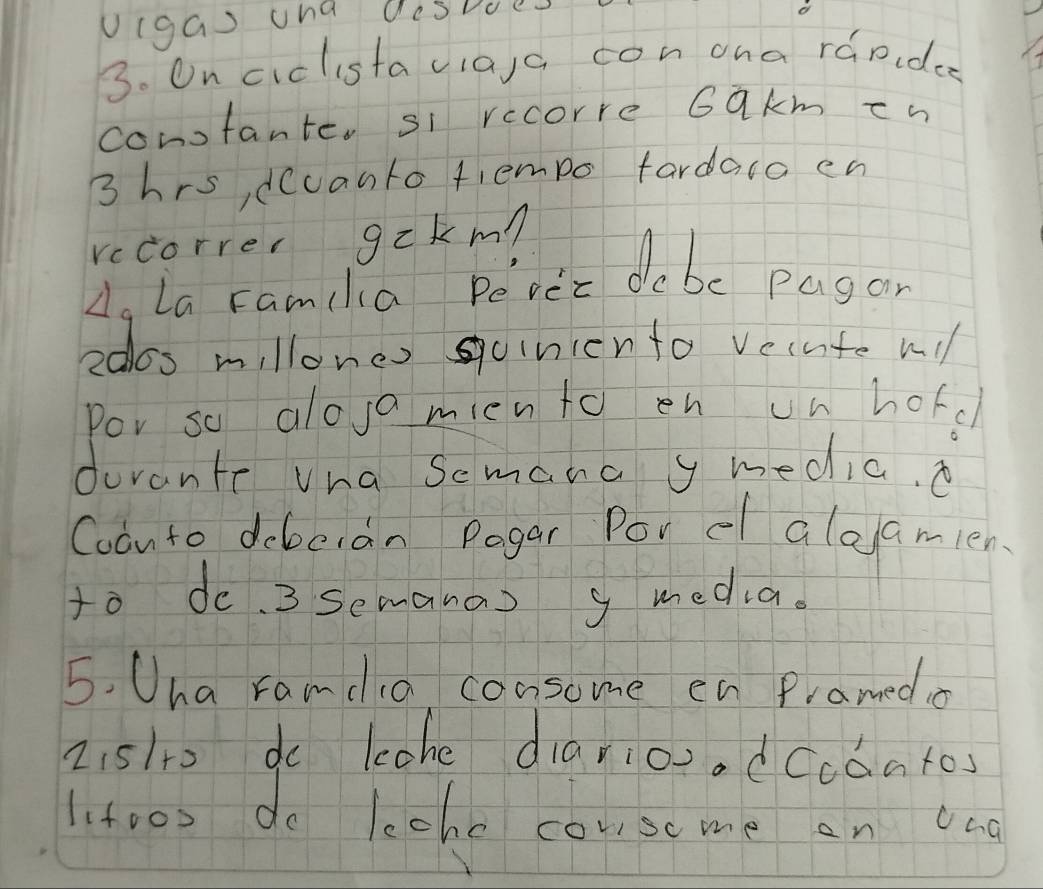 vigas una después
3. Un ciclista viaja con una rápidez
constante. si recorre 69km en
3 hrs, ¿cuanto tiempo tardara en
recorrer 92km?
4. La familia Peréz debe pagar
2dos millones quiniento veinte mil
Por su alojamiento en un hotel
durante una Semana y media. ¿
Cuánto deberán Pagar Por el alojamien-
to de 3 semanas y media.
5. Una familia consome en Pramedio
2,5 lts de leche diarios. ¿Cuántos
litros de leche consume en una